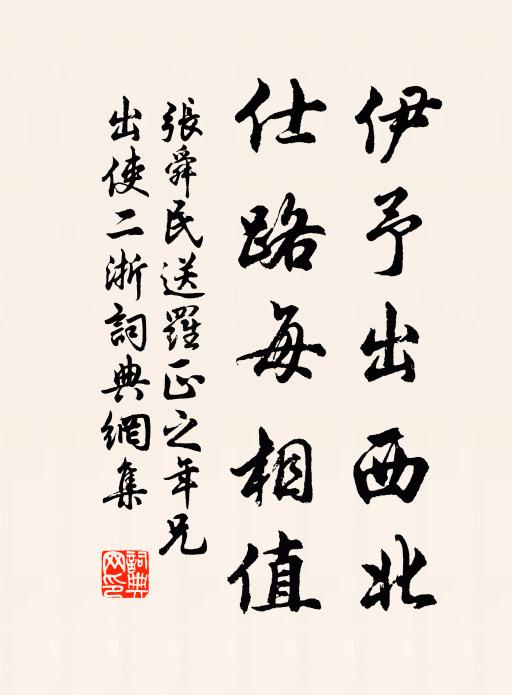 伊予出西北
仕路每相值
張舜民送羅正之年兄
出使二浙詞典網集
詞典网印